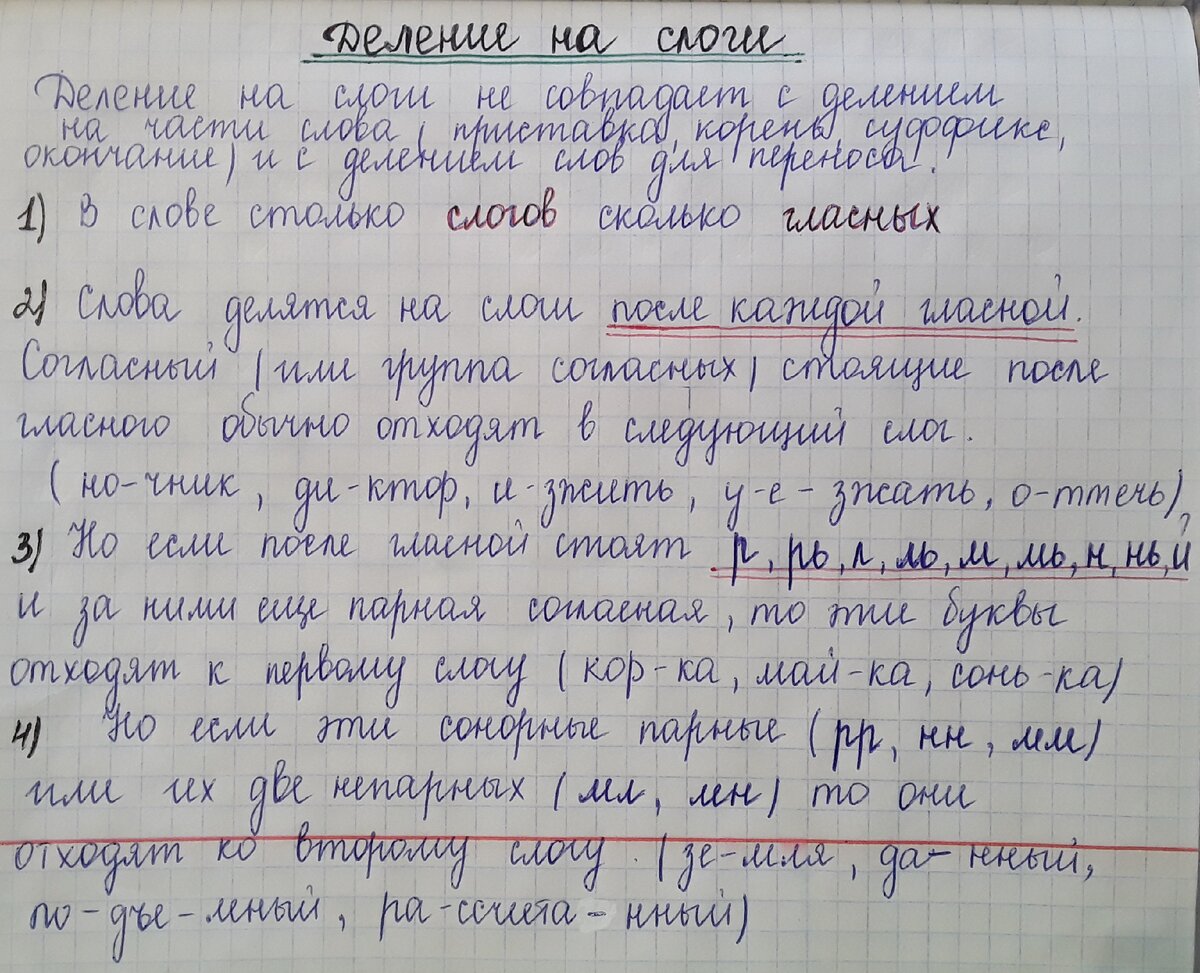 Деление на слоги
Деление на слоги не совпадает с делением
на части слова (приставка, корень, суффикс,
окончание) и с делением слов для переноса.
1) В слове столько слогов сколько гласных
2) Слова делятся на слоги после каждой гласной.
Согласный (или группа согласных) стоящие после
гласного обычно отходят в следующий слог.
(но-чник, ди-ктор, и-зжить, у-е-зжать, о-ттечь)
3) Но если после гласной стоят р, рь, л, ль, м, мь, н, нь, й
и за ними еще парная согласная, то эти буквы
отходят к первому слогу (кор-ка, май-ка, сонь-ка)
4) Но если эти сонорные парные (рр, нн, мм)
или их две непарных (мл, мн) то они
отходят ко второму слогу. (зе-мля, да-нный,
по-дъе-мный, ра-ссчита-нный)